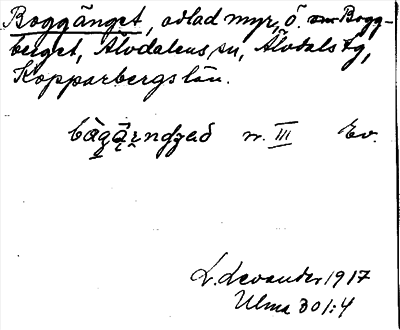 Boggänget, odlad myr, ö. om Bogg-
berget, Älvdalens sn, Älvdals tg,
Kopparbergs län.
bȧgärndʒað w. III Ev.
L. Levander 1917
Ulma 301:4